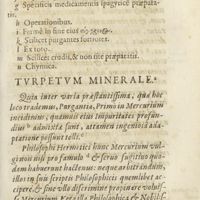 g Specificis medicamentis spagyricè præpara-
tis.
h Operationibus.
i Fræno in fine eius
k Scilicet purgantes fortiores.
l Ex toto.
m Scilicet crudi, & non ritè præparatis.
n Chymica.
TVRPETVM MINERALE.
Quia inter varia præstantissima, quæ hoc
loco trademus, Purgantia, Primò in Mercurium
incidimus, quamuis eius impuritates profun-
dius admixtæ sint, attamen ingeniosa ad
ptatione possunt tolli.
Philosophi Hermetici hunc Mercurium vul-
gi non nisi pro famulo & seruo fugitiuo quo-
dam habuerunt hactenus: neque arbitrandum,
illum in suis scriptis Philosophicis quemlibet ac-
cipere, & sine vllo discrimine proponere voluis-
se Mercurium Philosophica, & Nobilis